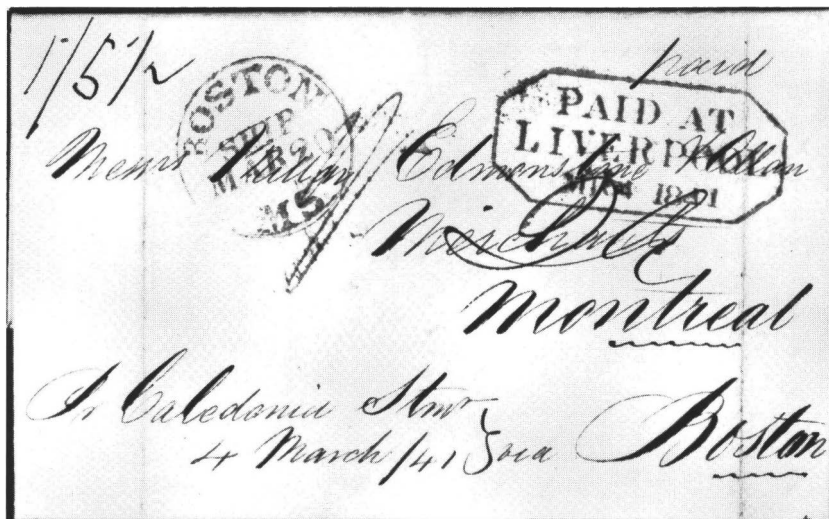 1/5½
paid
BOSTON
SHIP
MAR 20
MS
PAID AT
LIVERPOOL
1841
Messrs Millar Edmonstone Allan
Merchants
Montreal
Pr Caledonia Stmr
4 March/41 via Boston